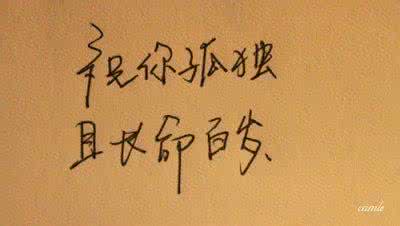 祝你孤独
且长命百岁、
camile